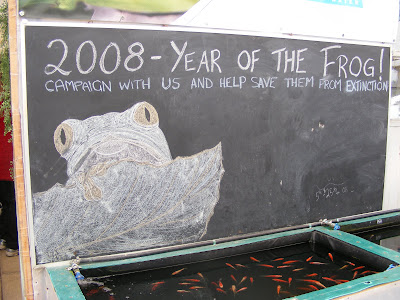 2008 - YEAR OF THE FROG!
CAMPAIGN WITH US AND HELP SAVE THEM FROM EXTINCTION